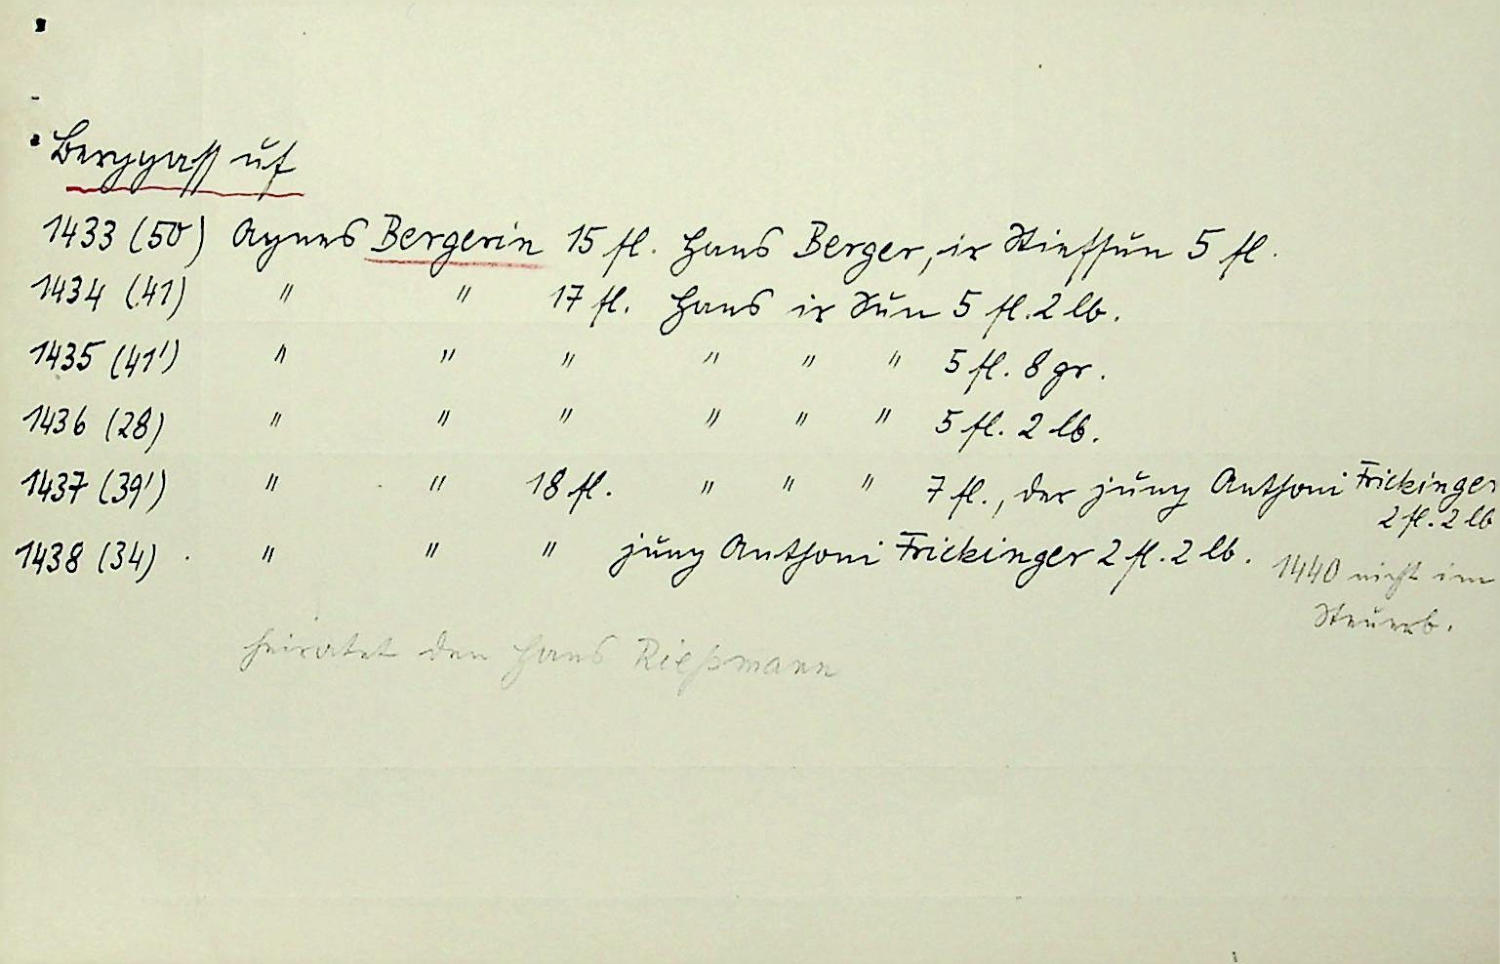 Berggass uf
1433 (50) Agnes Bergerin 15 fl. Hans Berger, ir Stiefsun 5 fl.
1434 (41) " " 17 fl. Hans ir Sun 5 fl. 2 lb.
1435 (41') " " " " " " 5 fl. 8 gr.
1436 (28) " " " " " " 5 fl. 2 lb.
1437 (39') " " 18 fl. " " " 7 fl., der jung Anthoni Frickinger
2 fl. 2 lb
1438 (34) " " " jung Anthoni Frickinger 2 fl. 2 lb. 1440 nicht im
Steuerb.
heiratet den Hans Rießmann